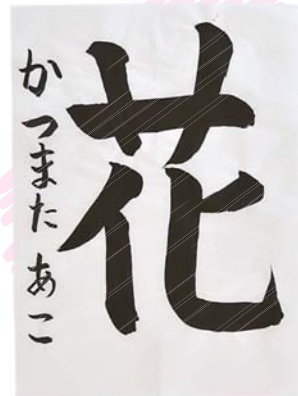 花
かつまた あこ